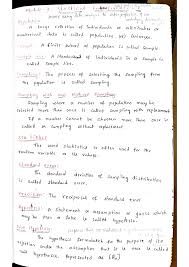 A large collection of individuals or attributes or
numerical data is called population or universe.
A finite subset of population is called sample
The number of individuals in a sample is
called sample size.
Sampling: The process of selecting the sampling
from the population is called sampling.
Sampling with and without
Sampling where a member of population may be
selected more than once is called sampling with replacement
If a member cannot be chosen more than once is
called a sampling without replacement
The word statistic is often used for the
random variable or its values.
Standard error:
The standard deviation of sampling distribution
is called standard error.
The reciprocal of standard error
A statement a assumption or guess which
may be true or false is called hypothesis.
The hypothesis formulated for the purpose of its
rejection under the assumption that it is true is called
null hypothesis. Represented as (H₀)